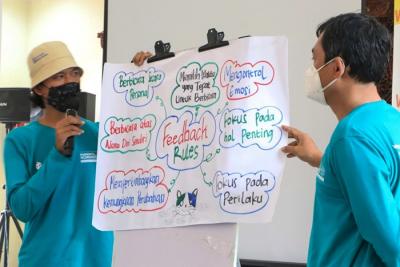 Berbicara Secara
Personal
Memilih Waktu
yang Tepat
Untuk Berbicara
Mengontrol
Emosi
Berbicara atas
Nama Diri Sendiri
Feedback
Rules
Fokus Pada
Hal Penting
Mempertimbangkan
Kemungkinan Perubahan
Fokus Pada
Perilaku